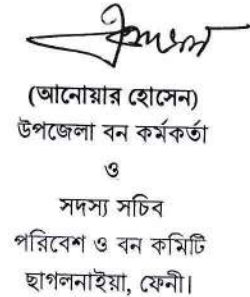 (আনোয়ার হোসেন)
উপজেলা বন কর্মকর্তা
ও
সদস্য সচিব
পরিবেশ ও বন কমিটি
ছাগলনাইয়া, ফেনী।